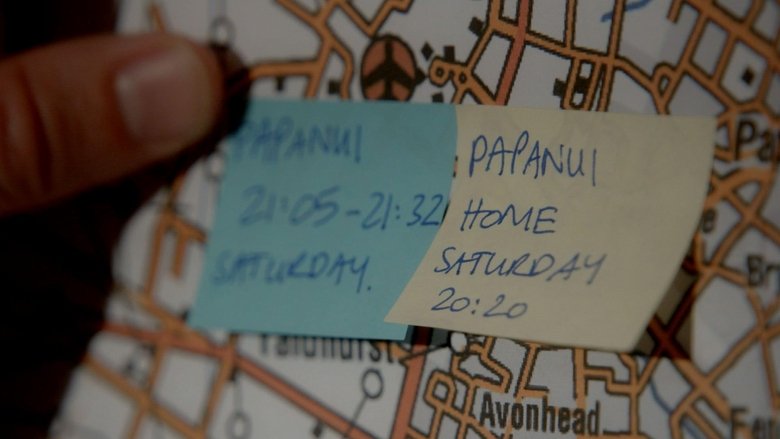 PAPANUI
21:05-21:32
SATURDAY.
PAPANUI
HOME
SATURDAY
20:20
Avonhead